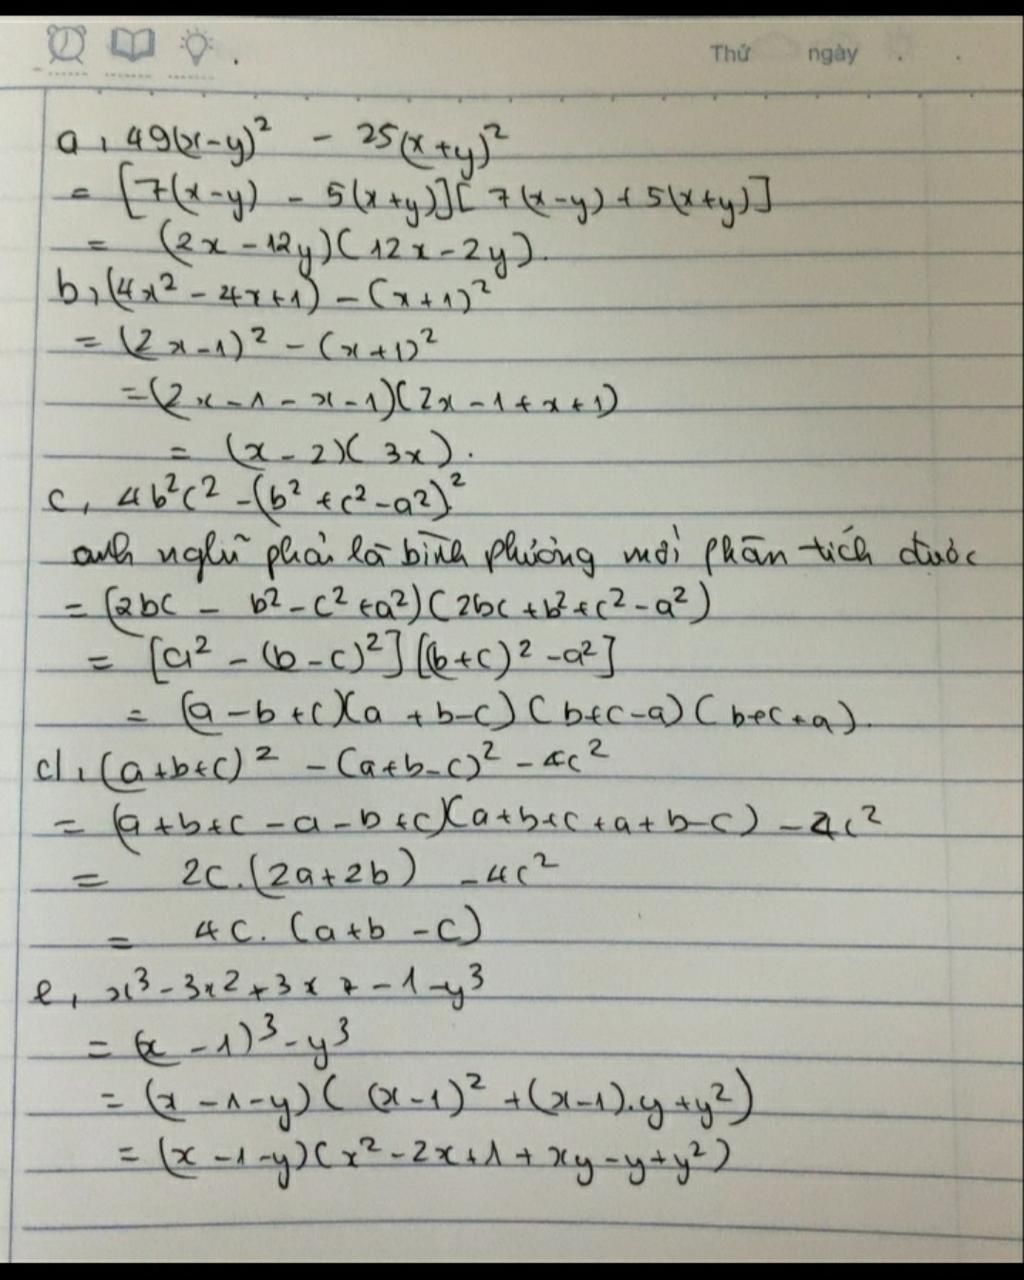 Thứ ngày
a, 49(x-y)² - 25(x+y)²
= [7(x-y) - 5(x+y)][7(x-y)+5(x+y)]
= (2x-12y)(12x-2y).
b, (4x²-4x+1)-(x+1)²
= (2x-1)²-(x+1)²
=(2x-1-x-1)(2x-1+x+1)
= (x-2)(3x).
c, 4b²c² -(b²+c²-a²)²
anh nghĩ phải là bình phương mới phân tích được
= (2bc - b²-c²+a²)(2bc+b²+c²-a²)
= [a²-(b-c)²][(b+c)²-a²]
= (a-b+c)(a+b-c)(b+c-a)(b+c+a).
d, (a+b+c)² -(a+b-c)² - 4c²
= (a+b+c-a-b+c)(a+b+c+a+b-c) - 4c²
= 2c.(2a+2b) - 4c²
= 4c.(a+b-c)
e, x³-3x²+3x-1-y³
= (x-1)³-y³
= (x-1-y)((x-1)²+(x-1).y+y²)
= (x-1-y)(x²-2x+1+xy-y+y²)